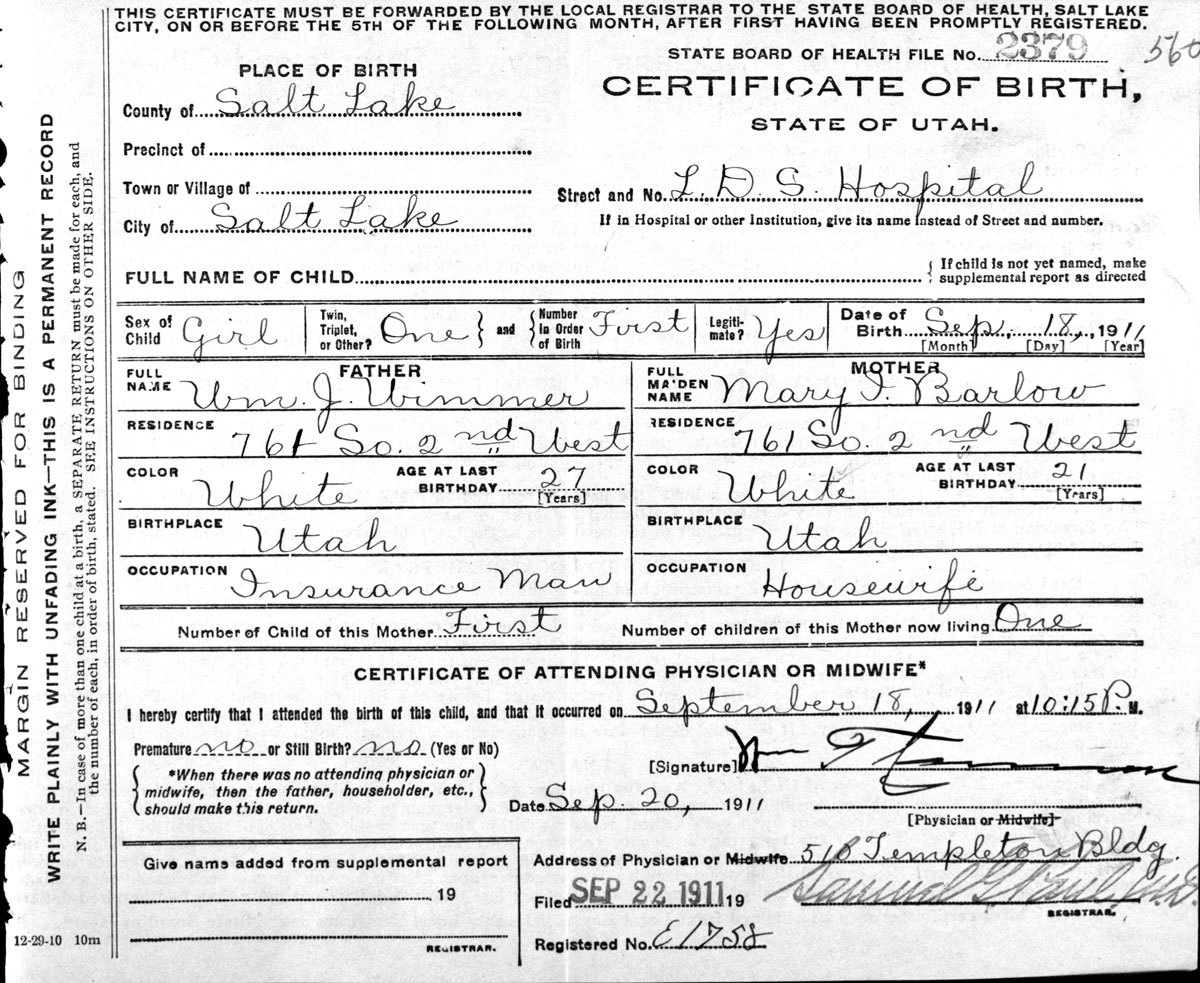 THIS CERTIFICATE MUST BE FORWARDED BY THE LOCAL REGISTRAR TO THE STATE BOARD OF HEALTH, SALT LAKE
CITY, ON OR BEFORE THE 5TH OF THE FOLLOWING MONTH, AFTER FIRST HAVING BEEN PROMPTLY REGISTERED.
STATE BOARD OF HEALTH FILE No. 2379 560
PLACE OF BIRTH
CERTIFICATE OF BIRTH,
STATE OF UTAH.
County of Salt Lake
Precinct of
Town or Village of
Street and No. L. D. S. Hospital
City of Salt Lake
If in Hospital or other Institution, give its name instead of Street and number.
FULL NAME OF CHILD
{ If child is not yet named, make
supplemental report as directed
Sex of Child Girl
Twin, Triplet, or Other? One } and { Number in Order of Birth First
Legiti-mate? Yes
Date of Birth Sep. 18, 1911
[Month] [Day] [Year]
FATHER
FULL NAME Wm. J. Wimmer
RESIDENCE 761 So. 2nd West
COLOR White AGE AT LAST BIRTHDAY 27 [Years]
BIRTHPLACE Utah
OCCUPATION Insurance Man
MOTHER
FULL MAIDEN NAME Mary I. Barlow
RESIDENCE 761 So. 2nd West
COLOR White AGE AT LAST BIRTHDAY 21 [Years]
BIRTHPLACE Utah
OCCUPATION Housewife
Number of Child of this Mother First Number of children of this Mother now living One
CERTIFICATE OF ATTENDING PHYSICIAN OR MIDWIFE*
I hereby certify that I attended the birth of this child, and that it occurred on September 18, 1911 at 10:15 P. M.
Premature no or Still Birth? no (Yes or No)
[Signature]
{ *When there was no attending physician or
midwife, then the father, householder, etc.,
should make this return. }
Date Sep. 20, 1911
[Physician or Midwife]
Give name added from supplemental report
19
REGISTRAR.
Address of Physician or Midwife 518 Templeton Bldg.
Filed SEP 22 1911 19
REGISTRAR.
Registered No.
12-29-10 10m
MARGIN RESERVED FOR BINDING
WRITE PLAINLY WITH UNFADING INK—THIS IS A PERMANENT RECORD
N. B.—In case of more than one child at a birth, a SEPARATE RETURN must be made for each, and
the number of each, in order of birth, stated. SEE INSTRUCTIONS ON OTHER SIDE.